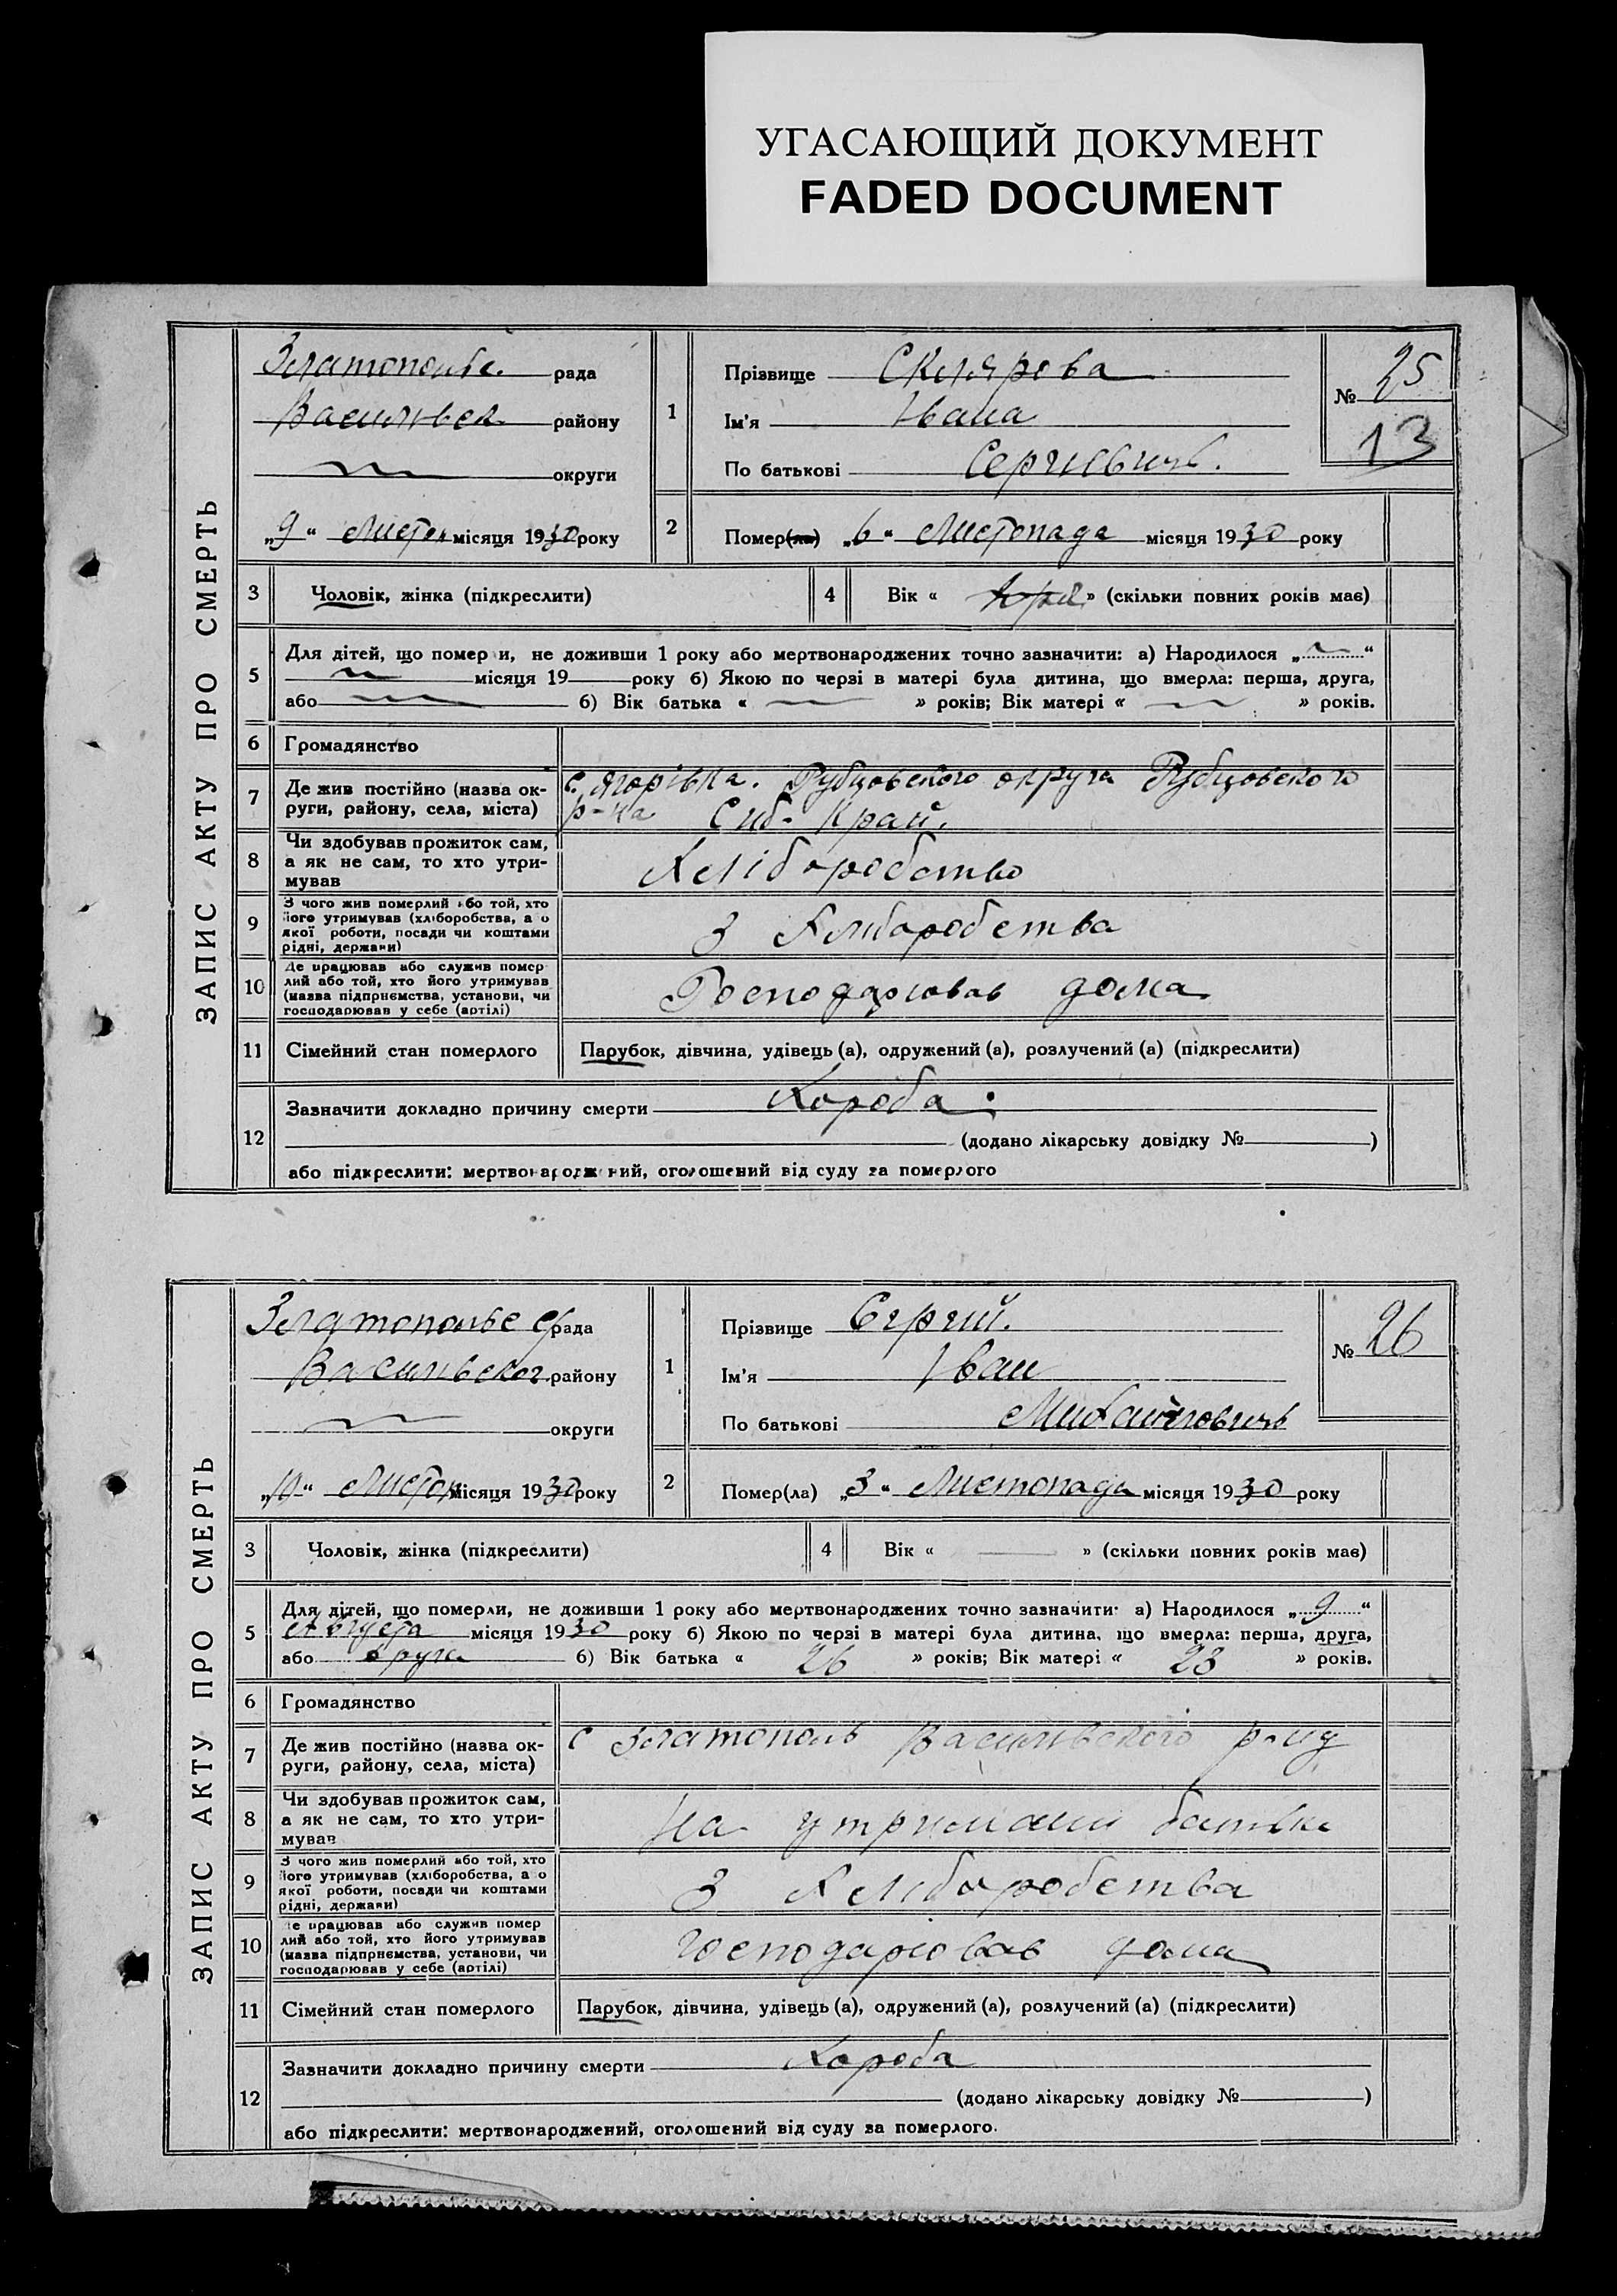 УГАСАЮЩИЙ ДОКУМЕНТ
FADED DOCUMENT
ЗАПИС АКТУ ПРО СМЕРТЬ
Златопольс. рада
Васильвск району
округи
„9“ Листоп місяця 1930 року
1
Прізвище Склярова
Ім'я Івана
По батькові Сергиевичь.
№ 25
13
2
Помер(ла) „6“ Листопада місяця 1930 року
3 Чоловік, жінка (підкреслити)
4 Вік « » (скільки повних років має)
5 Для дітей, що померли, не доживши 1 року або мертвонароджених точно зазначити: а) Народилося „ “
місяця 19 року б) Якою по черзі в матері була дитина, що вмерла: перша, друга,
або б) Вік батька « » років; Вік матері « » років.
6 Громадянство
7 Де жив постійно (назва ок-
руги, району, села, міста)
с. Ягорівка. Рубцовского округа Рубцовского
р-на Сиб-Край.
8 Чи здобував прожиток сам,
а як не сам, то хто утри-
мував
Хліборобство
9 З чого жив померлий або той, хто
його утримував (хліборобства, а о
якої роботи, посади чи коштами
рідні, держави)
З Хліборобства
10 Де працював або служив помер
лий або той, хто його утримував
(назва підприємства, установи, чи
господарював у себе (артілі)
Господарював дома
11 Сімейний стан померлого
Парубок, дівчина, удівець (а), одружений (а), розлучений (а) (підкреслити)
12 Зазначити докладно причину смерти Хороба.
(додано лікарську довідку № )
або підкреслити: мертвонароджений, оголошений від суду за померлого
ЗАПИС АКТУ ПРО СМЕРТЬ
Златопольс рада
Васильвског району
округи
„10“ Листоп місяця 1930 року
1
Прізвище Сергий.
Ім'я Іван
По батькові Михайловичь
№ 26
2
Помер(ла) „3“ Листопада місяця 1930 року
3 Чоловік, жінка (підкреслити)
4 Вік « » (скільки повних років має)
5 Для дітей, що померли, не доживши 1 року або мертвонароджених точно зазначити: а) Народилося „9“
Августа місяця 1930 року б) Якою по черзі в матері була дитина, що вмерла: перша, друга,
або друга б) Вік батька « 26 » років; Вік матері « 23 » років.
6 Громадянство
7 Де жив постійно (назва ок-
руги, району, села, міста)
с Златополь Васильвского р-ну
8 Чи здобував прожиток сам,
а як не сам, то хто утри-
мував
На утримані батька
9 З чого жив померлий або той, хто
його утримував (хліборобства, а о
якої роботи, посади чи коштами
рідні, держави)
З Хліборобства
10 Де працював або служив помер
лий або той, хто його утримував
(назва підприємства, установи, чи
господарював у себе (артілі)
Господарював дома
11 Сімейний стан померлого
Парубок, дівчина, удівець (а), одружений (а), розлучений (а) (підкреслити)
12 Зазначити докладно причину смерти Хороба
(додано лікарську довідку № )
або підкреслити: мертвонароджений, оголошений від суду за померлого.